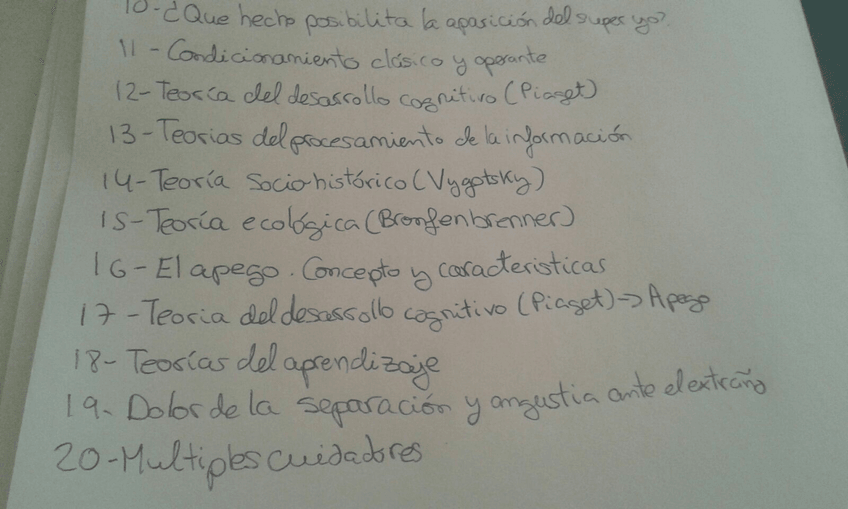 10-¿Que hecho posibilita la aparición del super yo?
11-Condicionamiento clásico y operante
12-Teoría del desarrollo cognitivo (Piaget)
13-Teorias del procesamiento de la información
14-Teoría Socio-histórico (Vygotsky)
15-Teoría ecológica (Bronfenbrenner)
16-El apego. Concepto y caracteristicas
17-Teoria del desarrollo cognitivo (Piaget)-> Apego
18-Teorías del aprendizaje
19-Dolor de la separación y angustia ante el extraño
20-Multiples cuidadores